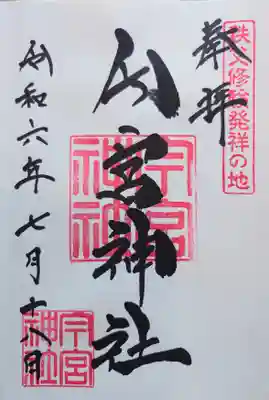 秩父修験発祥の地
奉拝
今宮神社
今宮神社
令和六年七月十八日
今宮神社